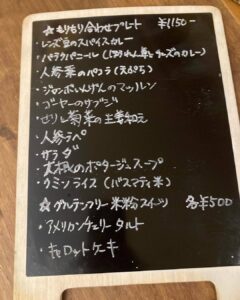 ☆もりもり合わせプレート ¥1150-
・レンズ豆のスパイスカレー
・パラクパニール(ほうれん草とチーズのカレー)
・人参葉のパコラ(天ぷら)
・ジャンボいんげんのマッルン
・ゴーヤーのサブジ
・セリと菊菜の生姜和え
・人参ラペ
・サラダ
のポタージュスープ
・クミンライス(バスマティ米)
☆グルテンフリー 米粉スイーツ 各¥500
・アメリカンチェリータルト
・キャロットケーキ